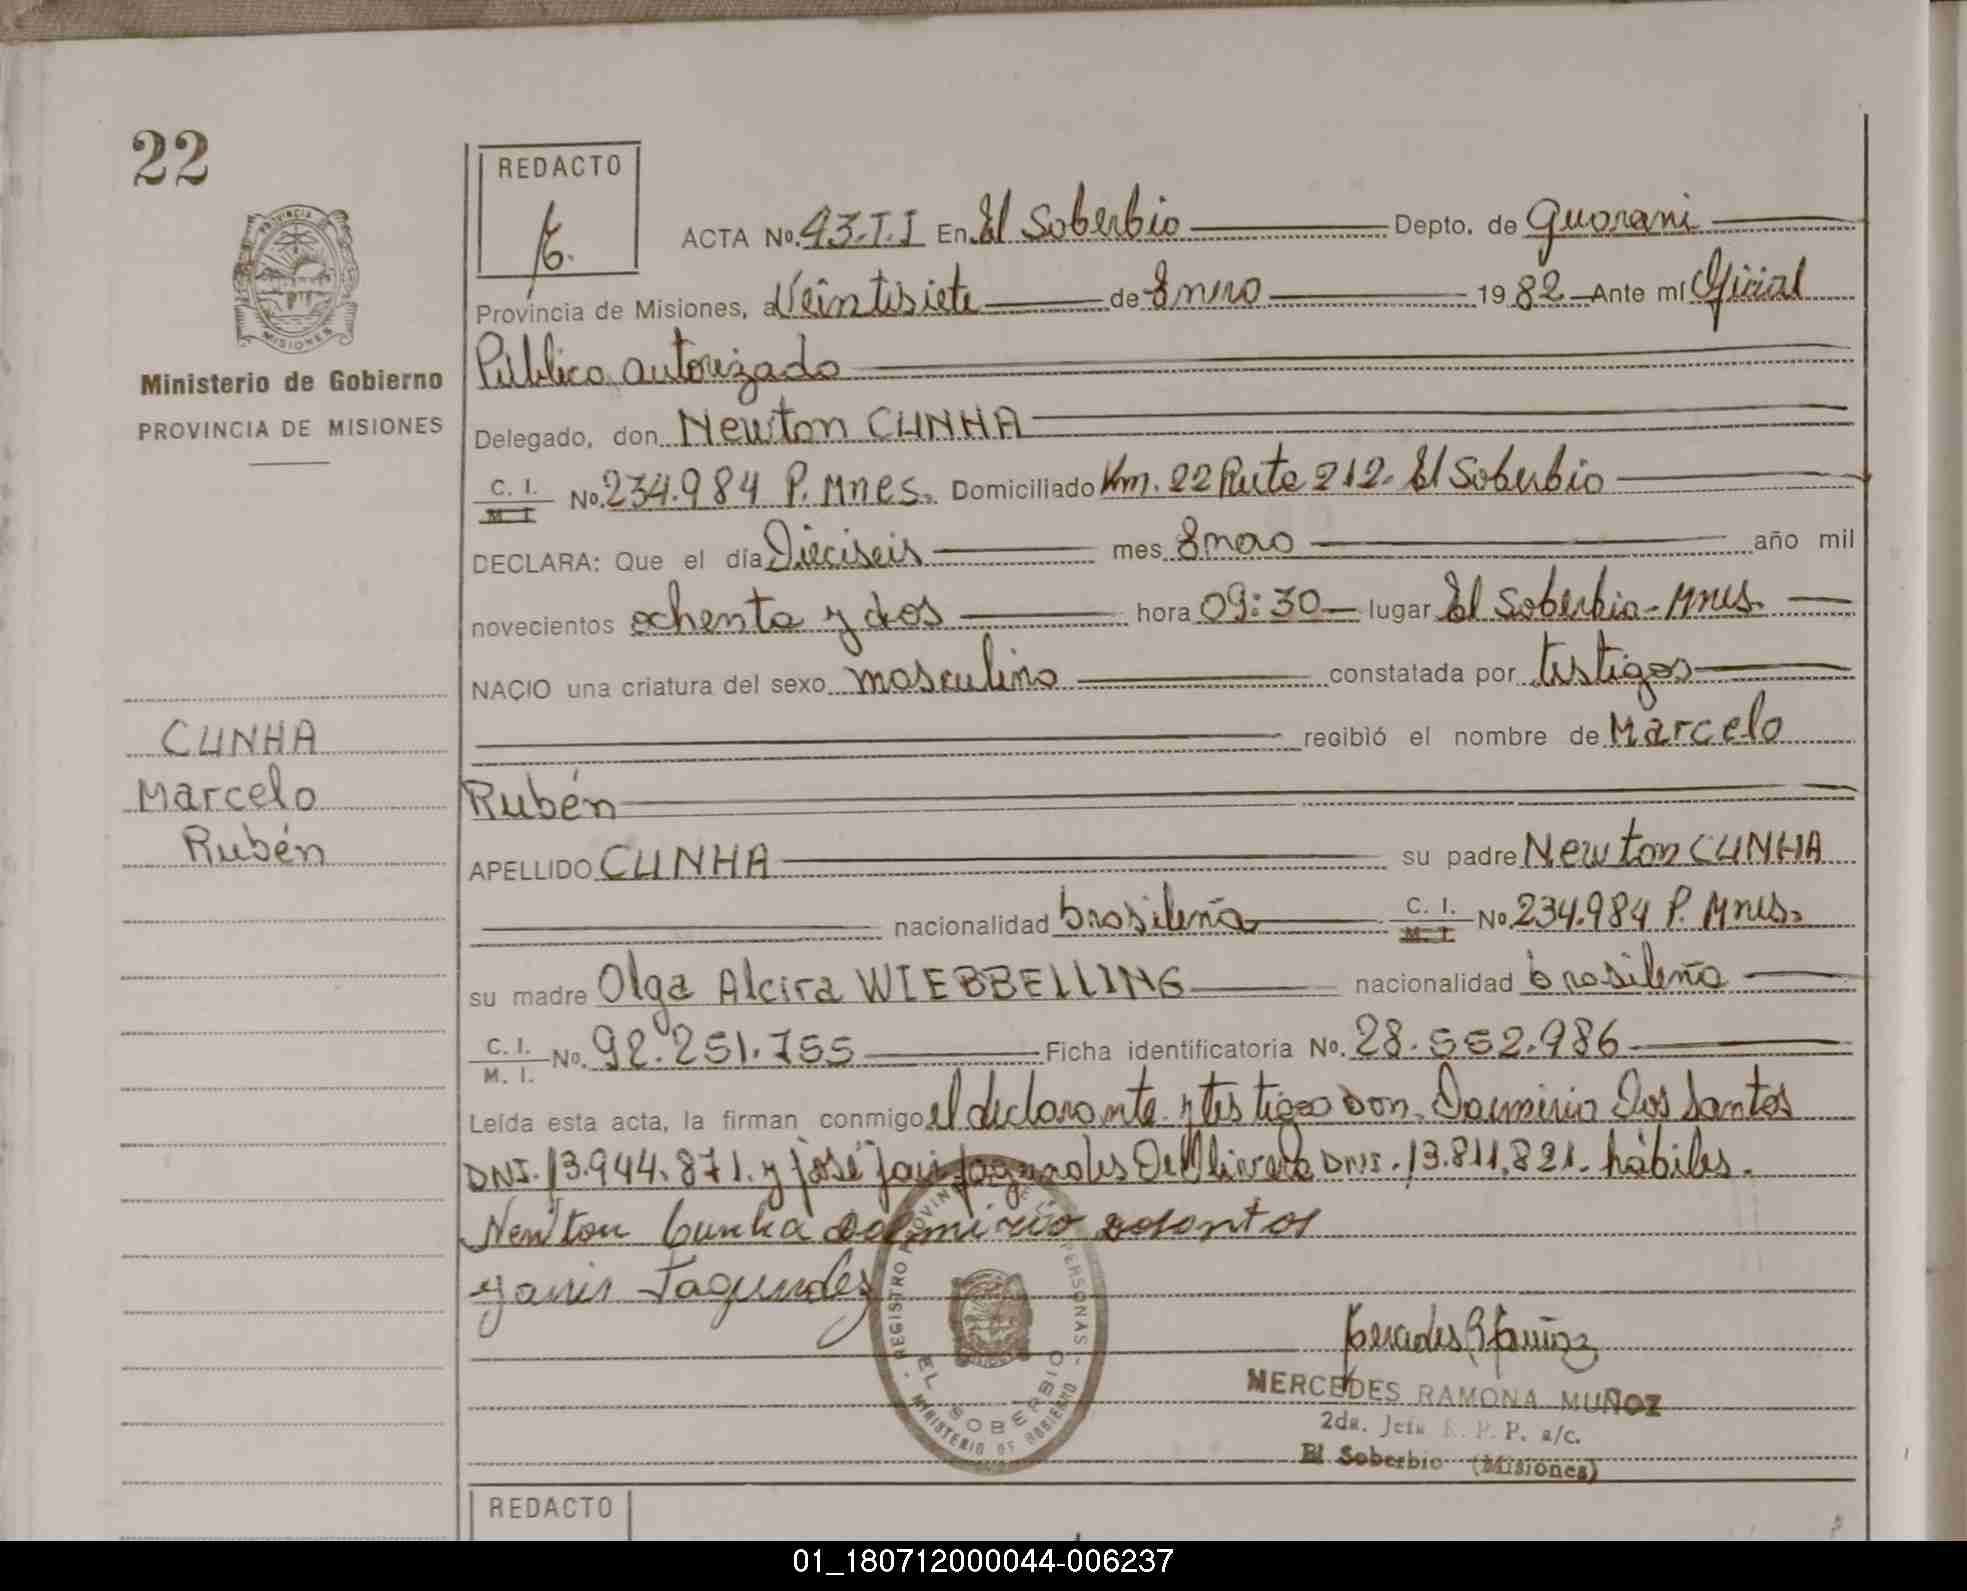 22
REDACTO
ACTA No. 43.T.I En El Soberbio Depto. de Guarani
Provincia de Misiones, a Veintisiete de Enero 1982 Ante mí Oficial
Público autorizado
Ministerio de Gobierno
PROVINCIA DE MISIONES
Delegado, don Newton CUNHA
C. I. M I No. 234.984 P. Mnes. Domiciliado Km. 22 Ruta 212. El Soberbio
DECLARA: Que el día Dieciseis mes Enero año mil
novecientos ochenta y dos hora 09:30 lugar El Soberbio - Mnes.
NACIO una criatura del sexo masculino constatada por testigos
recibió el nombre de Marcelo
Rubén
CUNHA
Marcelo
Rubén
APELLIDO CUNHA su padre Newton CUNHA
nacionalidad brasileña C. I. M. I. No. 234.984 P. Mnes.
su madre Olga Alcira WIEBBELLING nacionalidad brasileña
C. I. M. I. No. 92.251.755 Ficha identificatoria No. 28.552.986
Leída esta acta, la firman conmigo el declarante y testigos Don. Dos Santos
DNI. 13.944.871. y José Fagundes De Olivera DNI. 13.811.821. hábiles.
Newton Cunha
Fagundes
REGISTRO PROVINCIAL DE LAS PERSONAS
EL SOBERBIO
MINISTERIO DE GOBIERNO
MERCEDES RAMONA MUÑOZ
2da. Jefa R. P. P. a/c.
El Soberbio (Misiones)
REDACTO
01_180712000044-006237